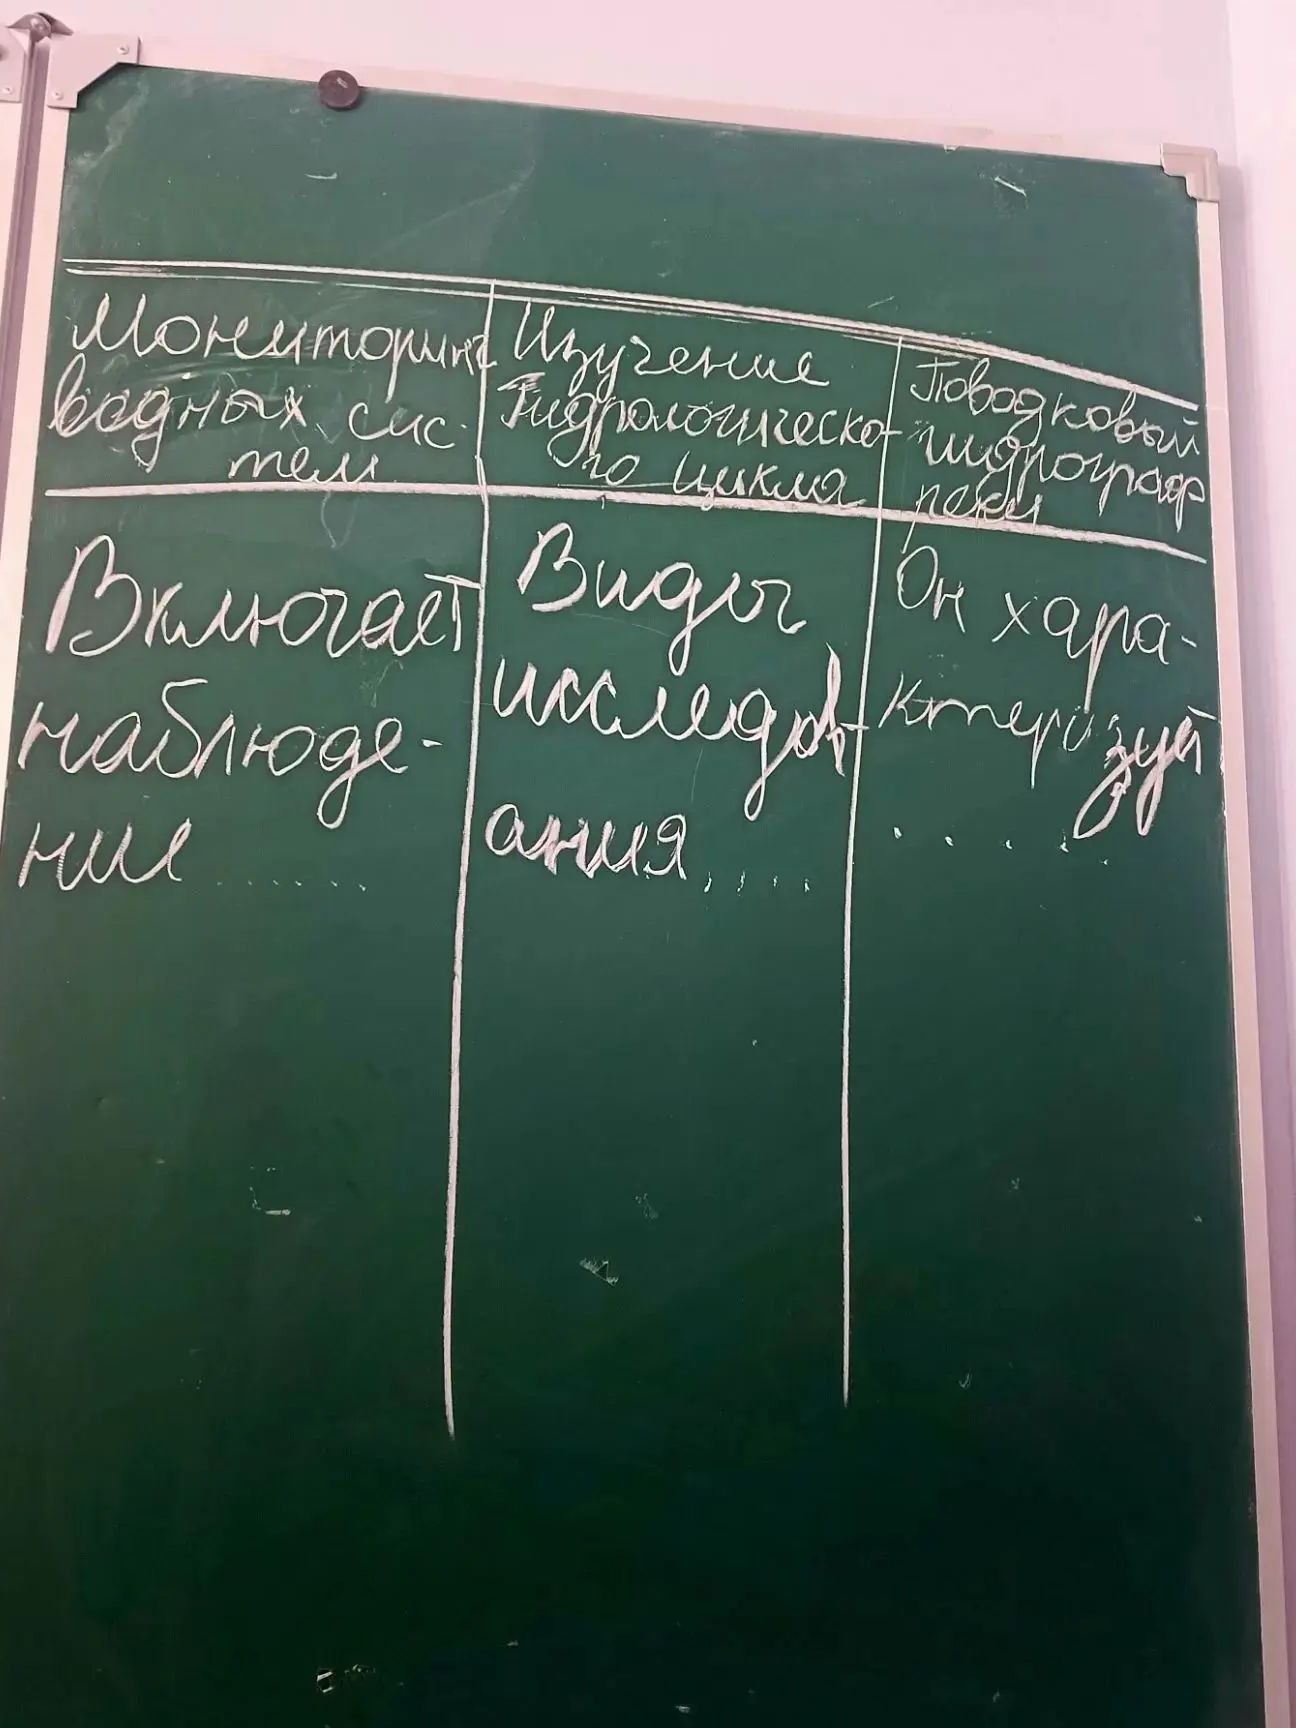 Мониторинг
водных сис-
тем
Изучение
Гидрологическо-
го цикла
Поводковый
гидрограф
реки
Включает
наблюде-
ние ......
Виды
исследов-
ания ....
Он хара-
ктеризует
.....